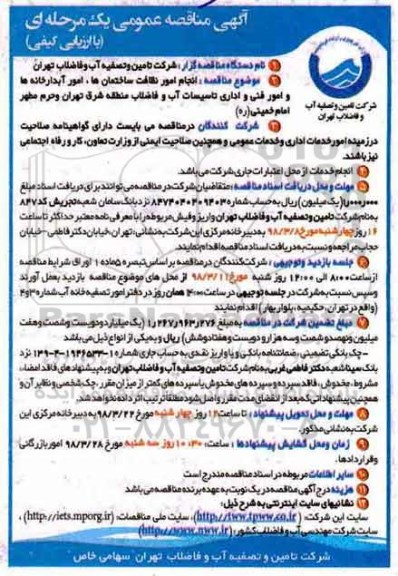 آگهی مناقصه عمومی یک مرحله ای
(با ارزیابی کیفی)
شرکت تامین و تصفیه آب
و فاضلاب تهران
۱ نام دستگاه مناقصه گزار : شرکت تامین و تصفیه آب و فاضلاب تهران
۲ موضوع مناقصه : انجام امور نظافت ساختمان ها ، امور آبدارخانه ها
و امور فنی و اداری تاسیسات آب و فاضلاب منطقه شرق تهران و حرم مطهر
امام خمینی(ره)
۳ شرکت کنندگان در مناقصه می بایست دارای گواهینامه صلاحیت
در زمینه امور خدمات اداری و خدمات عمومی و همچنین صلاحیت ایمنی از وزارت تعاون، کار و رفاه اجتماعی
نیز باشند.
۴ انجام خدمات از محل اعتبارات جاری شرکت می باشد.
۵ مهلت و محل دریافت اسناد مناقصه : متقاضیان شرکت در مناقصه می توانند برای دریافت اسناد مبلغ
۱،۰۰۰،۰۰۰ (یک میلیون) ریال به حساب شماره نزد بانک سامان شعبه تجریش کد ۸۴۷
به نام شرکت تامین و تصفیه آب و فاضلاب تهران واریز و فیش مربوطه را با معرفی نامه معتبر حداکثر تا ساعت
۱۶ روز چهارشنبه مورخ ۹۸/۳/۸ به دبیرخانه مرکزی این شرکت به نشانی: تهران خیابان دکتر فاطمی - خیابان
حجاب مراجعه و نسبت به دریافت اسناد مناقصه اقدام نمایند.
۶ جلسه بازدید و توجیهی : شرکت کنندگان در مناقصه بر اساس تبصره ۵ ماده ۱ اوراق شرایط مناقصه
از ساعت ۸:۰۰ الی ۱۲:۰۰ روز شنبه مورخ ۹۸/۳/۱۱ از محل های موضوع مناقصه بازدید بعمل آورند
و سپس نسبت به شرکت در جلسه توجیهی در ساعت همان روز در دفتر امور تصفیه خانه آب شماره ۳ و ۴
(واقع در تهران، حکیمیه، بلوار بهار) اقدام نمایند
۷ مبلغ تضمین شرکت در مناقصه به مبلغ ۱،۲۶۷،۹۶۳،۲۷۶ (یک میلیارد و دویست و شصت و هفت
میلیون و نهصد و شصت و سه هزار و دویست و هفتاد و شش) ریال و به یکی از انواع ذیل می باشد
- چک بانکی تضمینی ، ضمانتنامه بانکی و یا واریز نقدی به حساب جاری شماره نزد
بانک سینا شعبه دکتر فاطمی غربی به نام شرکت تامین و تصفیه آب و فاضلاب تهران و به پیشنهادهای فاقد امضاء،
مشروط، مخدوش، فاقد سپرده و سپرده های مخدوش یا سپرده های کمتر از میزان مقرر، چک شخصی و نظایر آن و
همچنین پیشنهاداتی که بعد از انقضای مدت مقرر واصل شود مطلقاً ترتیب اثر داده نخواهد شد.
۸ مهلت و محل تحویل پیشنهاد : تا ساعت ۱۲ روز چهار شنبه مورخ ۹۸/۳/۲۲ به دبیرخانه مرکزی این
شرکت به نشانی مذکور.
۹ زمان و محل گشایش پیشنهادها : ساعت ۱۰:۳۰ روز سه شنبه مورخ ۹۸/۳/۲۸ امور بازرگانی
و قراردادها.
۱۰ سایر اطلاعات مربوطه در اسناد مناقصه مندرج است
۱۱ هزینه درج آگهی مناقصه در یک نوبت به عهده برنده مناقصه می باشد
۱۲ نشانیهای سایت اینترنتی به شرح ذیل:
سایت این شرکت: (http://www.tpww.co.ir)، سایت ملی مناقصات: (http://iets.mporg.ir)،
سایت شرکت مهندسی آب و فاضلاب کشور: (http://www.nww.ir)
شرکت تامین و تصفیه آب و فاضلاب تهران سهامی خاص